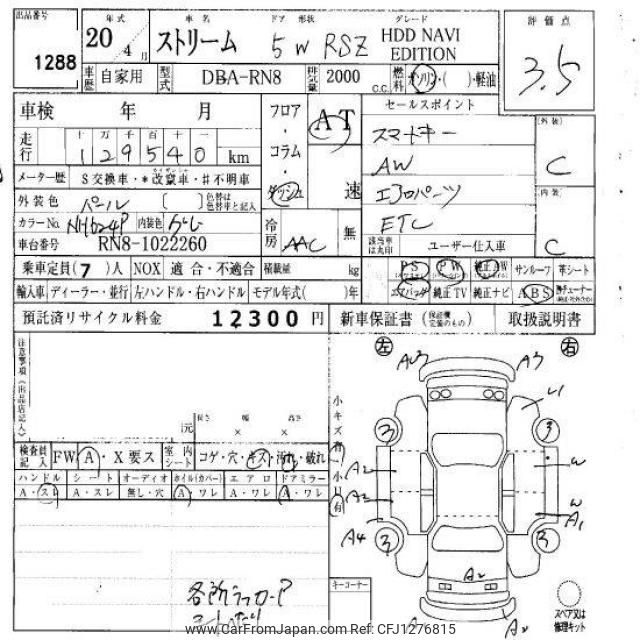 出品番号
1288
年式
20年
4月
車名
ストリーム
ドア 形状
5 W RSZ
グレード
HDD NAVI
EDITION
評価点
3.5
車歴
自家用
型式
DBA-RN8
排気量
2000 c.c.
燃料
ガソリン・( )・軽油
車検 年 月
走行
十 万 千 百 十 一
129540 km
フロア・コラム・ダッシュ
AT
速
セールスポイント
スマートキー
AW
エアロパーツ
ETC
外装
C
内装
C
メーター歴
S 交換車・*改竄車・♯不明車
外装色
パール
( )
色替は色替車と記入
カラーNo.
NH624P
内装色
グレー
車台番号
RN8-1022260
冷房
AAC
無
該当車は丸印
ユーザー仕入車
乗車定員(7)人
NOX 適合・不適合
積載量 kg
PS
PW
純正AW
サンルーフ
革シート
輸入車
ディーラー・並行
左ハンドル・右ハンドル
モデル年式( )年
エアバッグ
純正TV
純正ナビ
ABS
預託済リサイクル料金
12300円
新車保証書
取扱説明書
注意事項(出品店記入)
長さ 幅 高さ
× ×
検査員記入
FW
A・X要ス
室内シート
コゲ・穴・キズ・汚れ・破れ
ハンドル
シート
オーディオ
ホイル(カバー)
エアロ
ドアミラー
A・スレ
A・スレ
無し・穴
A・ワレ
A・ワレ
A・ワレ
小キズ有
小凹有
左
右
A3
3
3
A2
A2
A4
3
W
W
A1
3
A2
キーコーナー
スペア又は
修理キット
各所
www.CarFromJapan.com Ref CFJ1276815